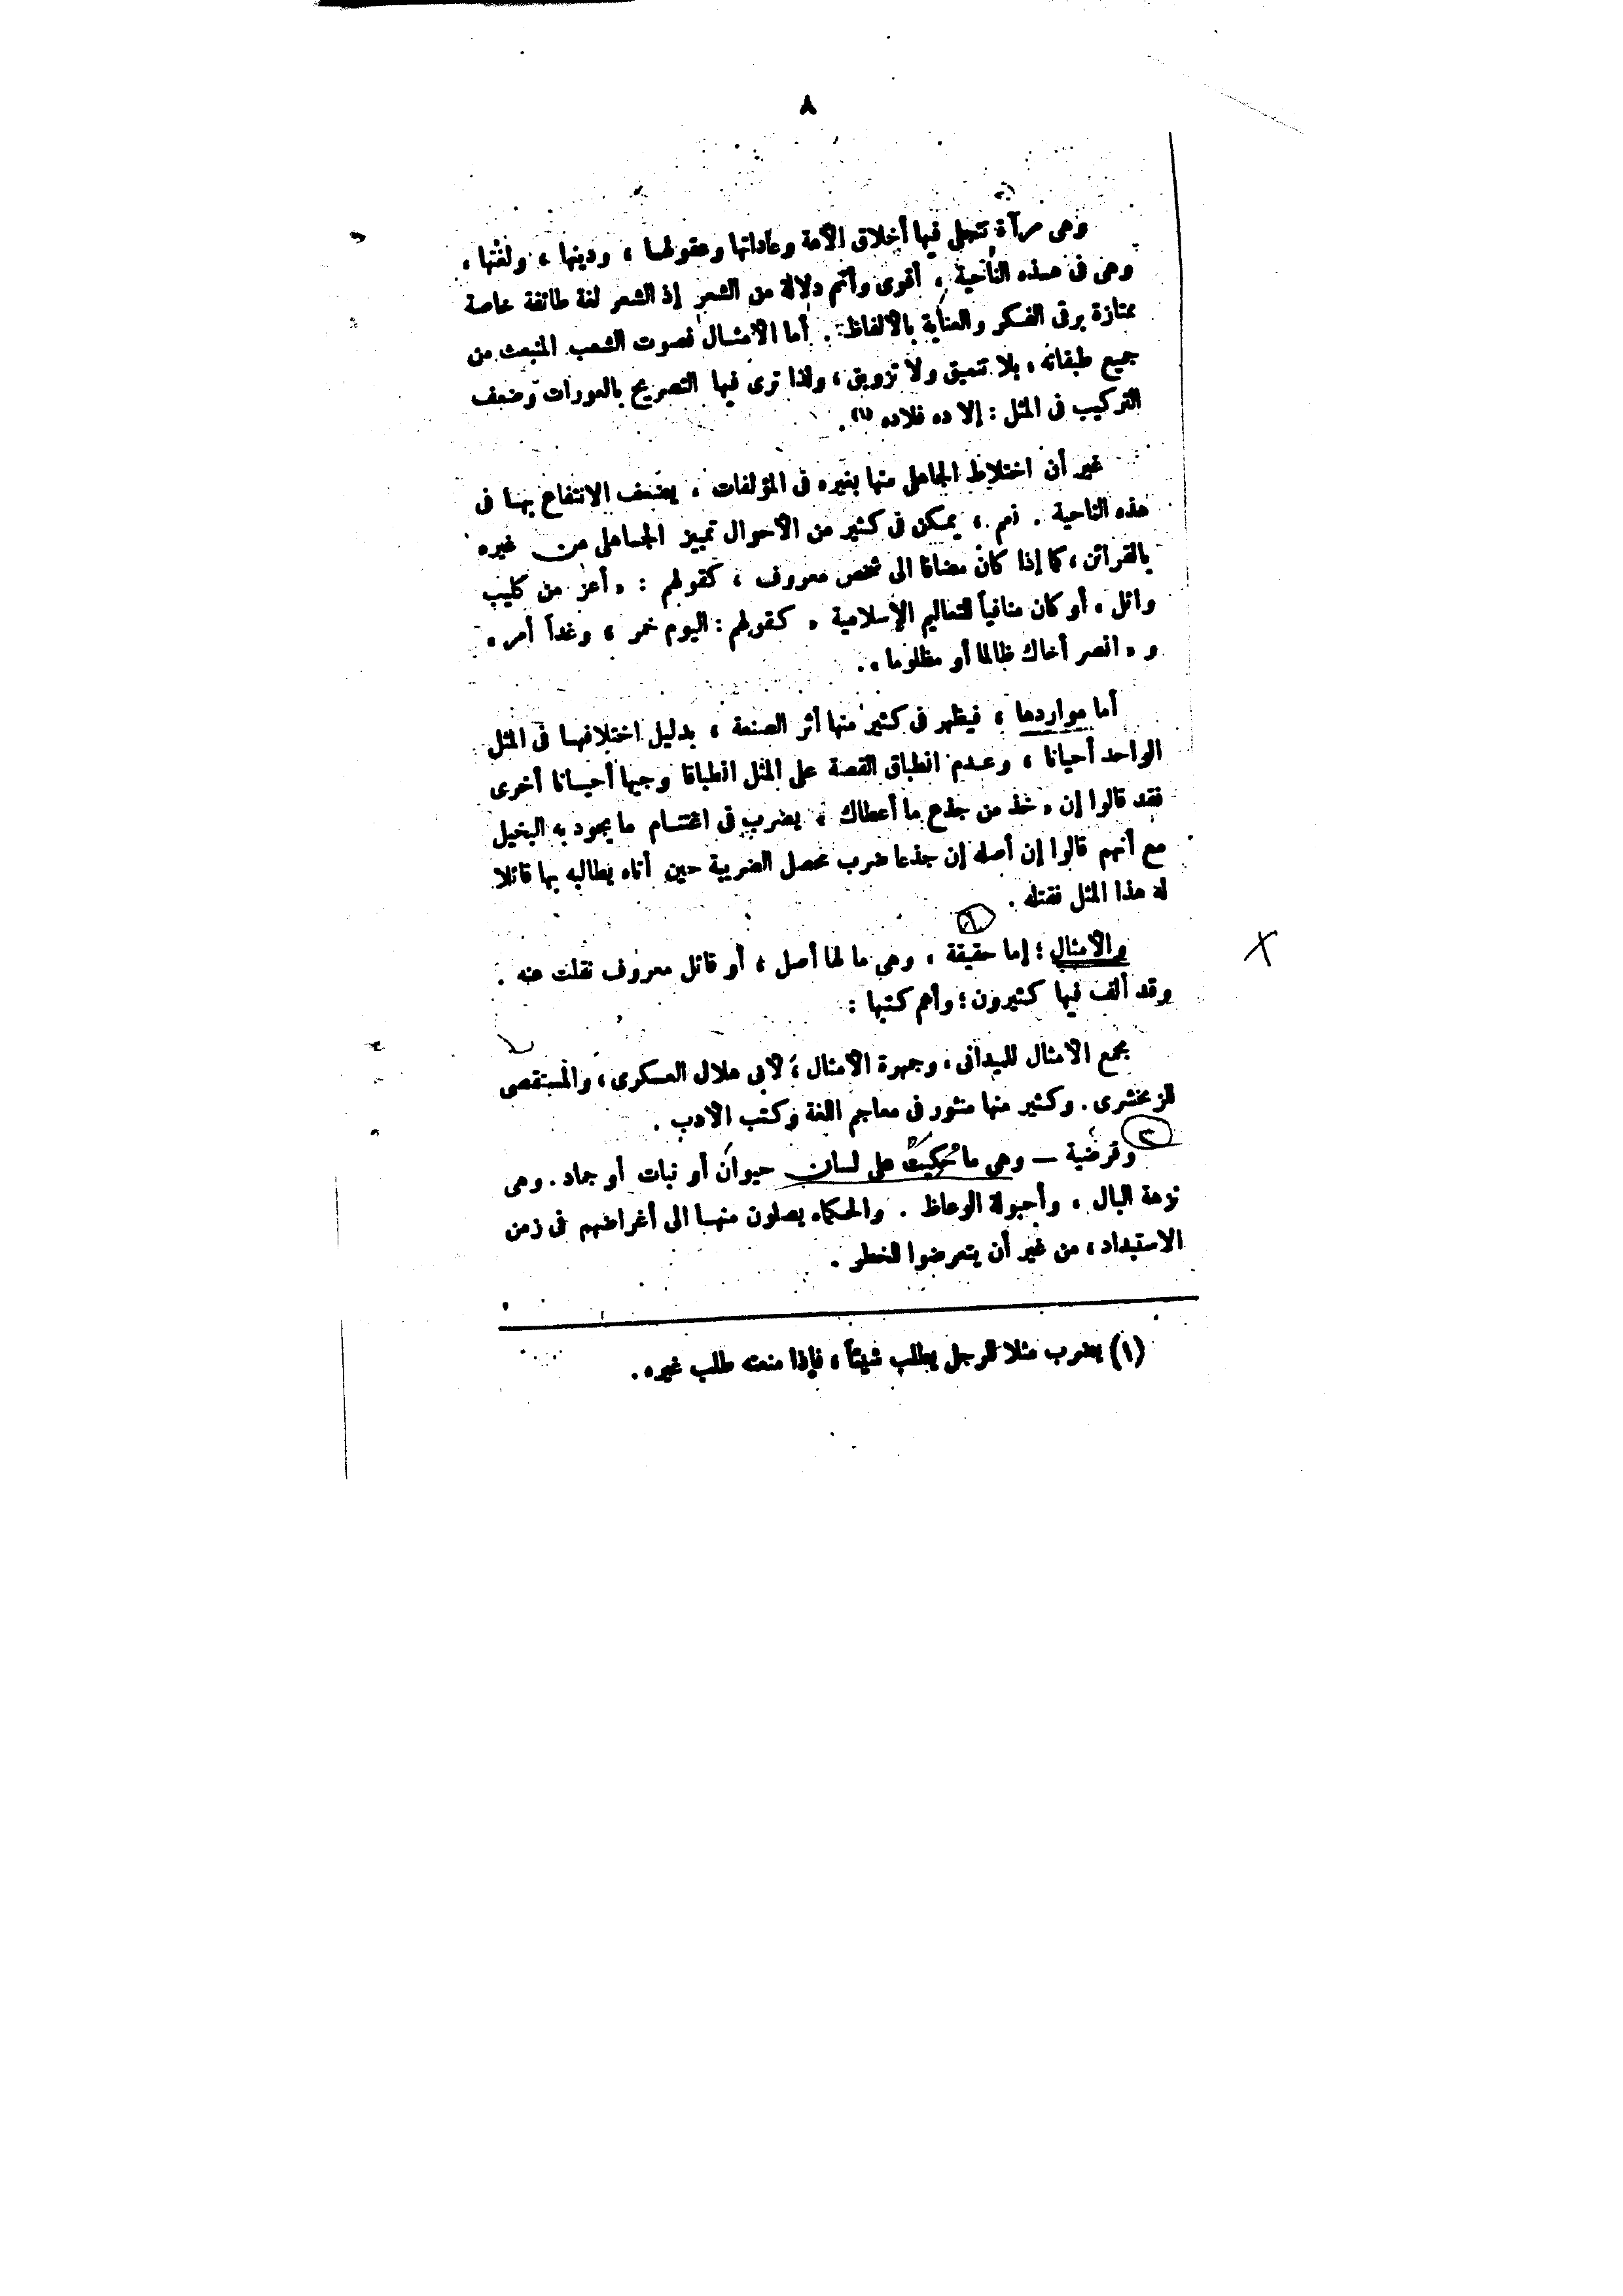 ٨
وهى مرآة تتجلى فيها أخلاق الأمة وعاداتها وعقولها ، ودينها ، ولغتها ،
وهى فى هذه الناحية ، أقوى وأتم دلالة من الشعر إذ الشعر لغة طائفة خاصة
ممتازة برقى الفكر والعناية بالألفاظ . أما الأمثال فصوت الشعب المنبعث من
جميع طبقاته ، بلا تنميق ولا تزويق ، ولذا ترى فيها التصريح بالعورات وضعف
التركيب فى المثل : إلا ده فلاده (١) .
غير أن اختلاط الجاهلى منها بغيره فى المؤلفات ، يضعف الانتفاع بها فى
هذه الناحية . نعم ، يمكن فى كثير من الأحوال تمييز الجاهلى من غيره
بالقرائن ، كما إذا كان مضافا الى شخص معروف ، كقولهم : « أعز من كليب
وائل ، أو كان منافياً للتعاليم الإسلامية » كقولهم : اليوم خمر ، وغداً أمر »
و « انصر أخاك ظالما أو مظلوما » .
أما مواردها ، فيظهر فى كثير منها أثر الصنعة ، بدليل اختلافها فى المثل
الواحد أحيانا ، وعدم انطباق القصة على المثل انطباقا وجيها أحيانا أخرى
فقد قالوا إن « خذ من جذع ما أعطاك » يضرب فى اغتنام ما يجود به البخيل
مع أنهم قالوا إن أصله إن جذعا ضرب محصل الضريبة حين أتاه يطالبه بها قائلا
له هذا المثل فقتله .
١
والأمثال ؛ إما حقيقة ، وهى ما لها أصل ، أو قائل معروف نقلت عنه .
وقد ألف فيها كثيرون ؛ وأهم كتبها :
مجمع الأمثال للميدانى ، وجمهرة الأمثال ؛ لأبى هلال العسكرى ، والمستقصى
للزمخشرى . وكثير منها منثور فى معاجم اللغة وكتب الأدب .
٢
وفرضية — وهى ما حُكِيَتْ على لسان حيوان أو نبات أو جماد . وهى
نزهة البال ، وأحبولة الوعاظ . والحكماء يصلون منها الى أغراضهم فى زمن
الاستبداد ، من غير أن يتعرضوا للخطر .
(١) يضرب مثلا للرجل يطلب شيئاً ، فإذا منعته طلب غيره .